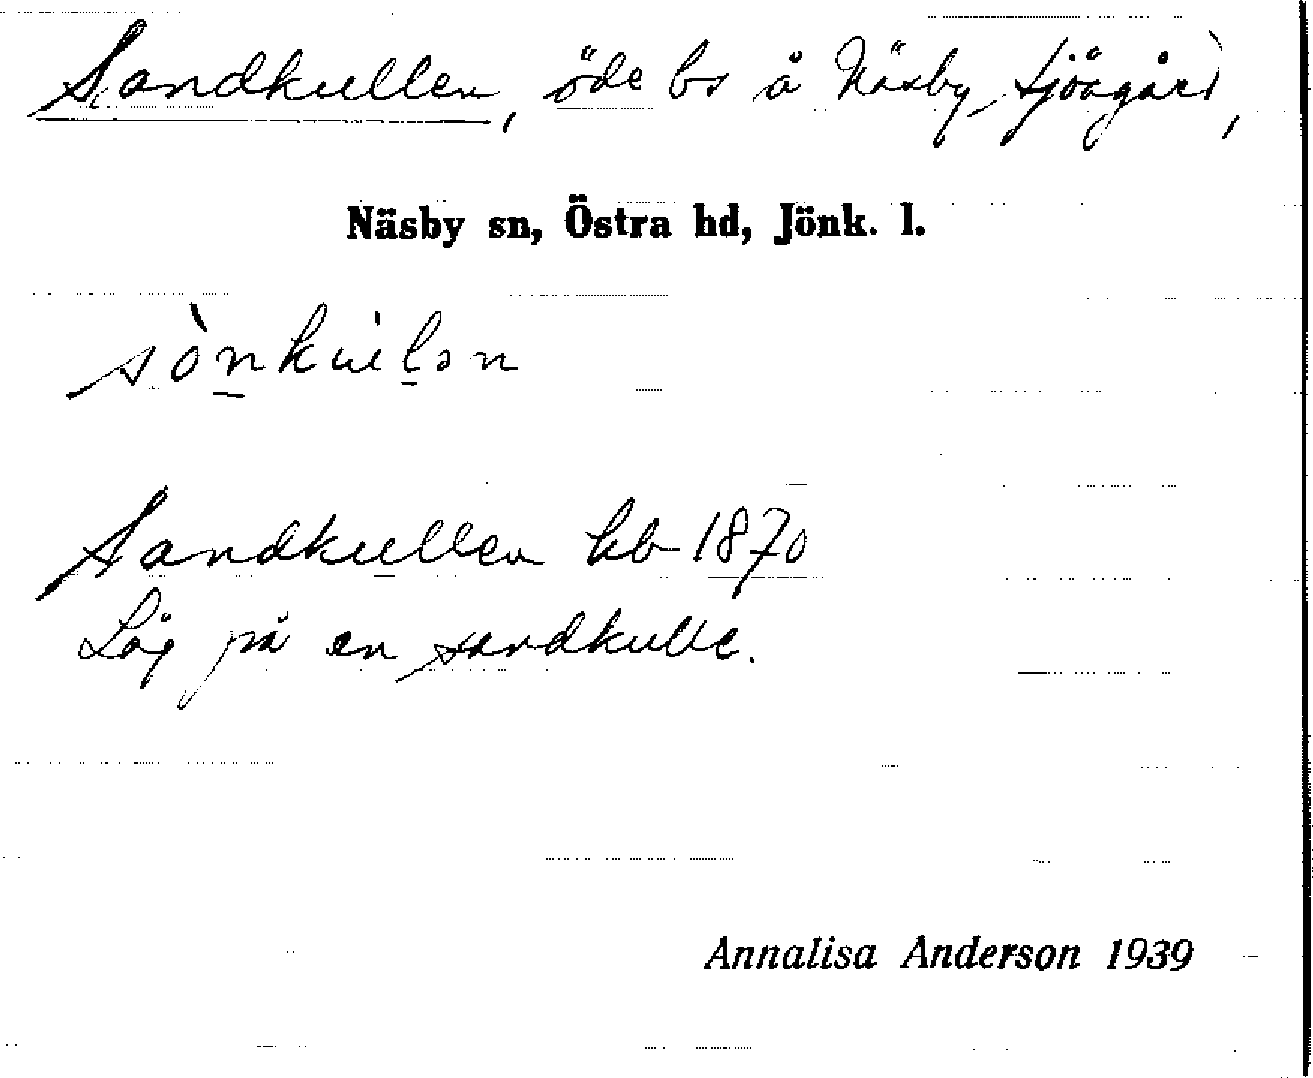 Sandkullen, öde bs å Näsby Sjöagård,
Näsby sn, Östra hd, Jönk. l.
Sandkullen hb 1870
Låg på en sandkulle.
Annalisa Anderson 1939